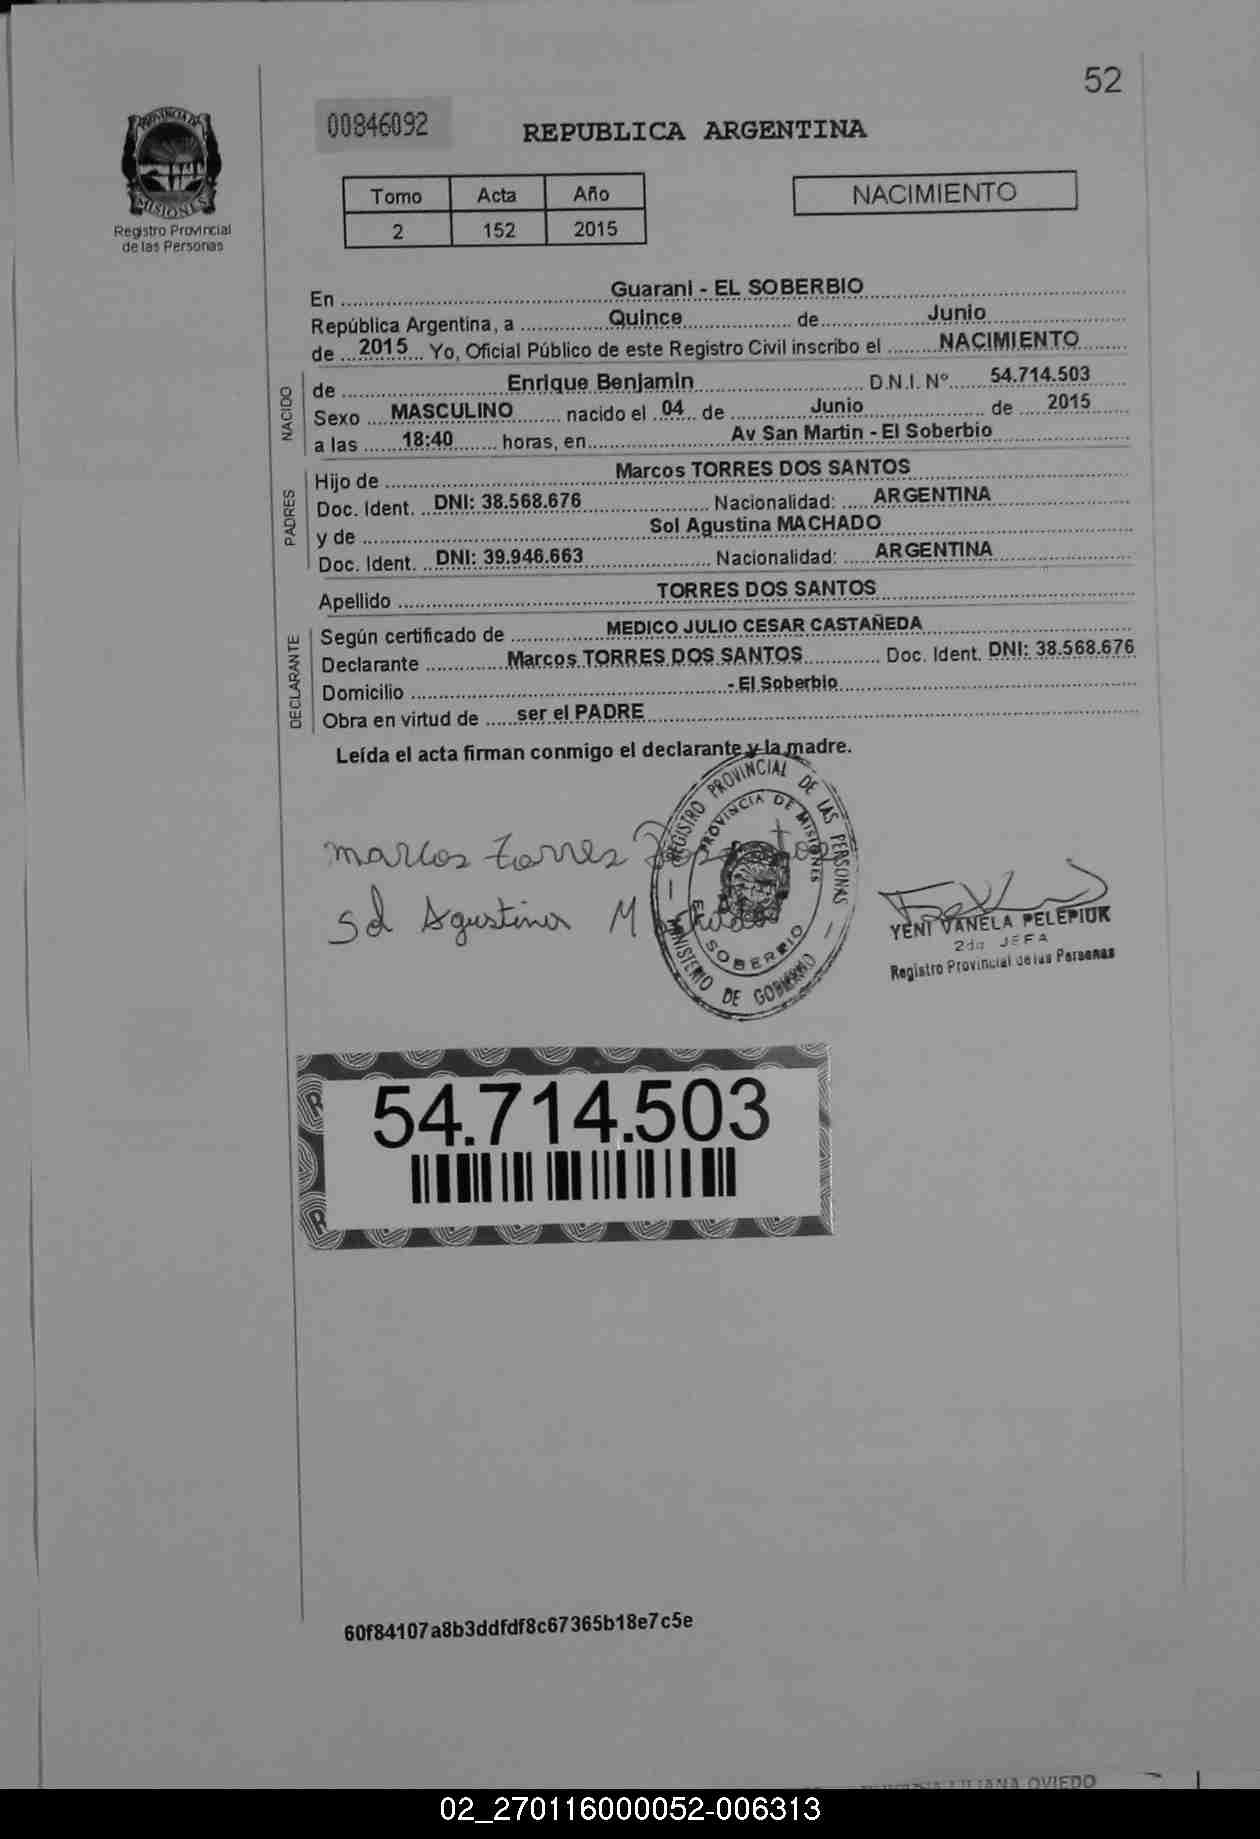 52
00846092
REPUBLICA ARGENTINA
PROVINCIA DE
MISIONES
Registro Provincial
de las Personas
Tomo Acta Año
2 152 2015
NACIMIENTO
En Guarani - EL SOBERBIO
República Argentina, a Quince de Junio
de 2015 Yo, Oficial Público de este Registro Civil inscribo el NACIMIENTO
NACIDO
de Enrique Benjamin D.N.I. Nº 54.714.503
Sexo MASCULINO nacido el 04 de Junio de 2015
a las 18:40 horas, en Av San Martin - El Soberbio
PADRES
Hijo de Marcos TORRES DOS SANTOS
Doc. Ident. DNI: 38.568.676 Nacionalidad: ARGENTINA
y de Sol Agustina MACHADO
Doc. Ident. DNI: 39.946.663 Nacionalidad: ARGENTINA
Apellido TORRES DOS SANTOS
DECLARANTE
Según certificado de MEDICO JULIO CESAR CASTAÑEDA
Declarante Marcos TORRES DOS SANTOS Doc. Ident. DNI: 38.568.676
Domicilio - El Soberbio
Obra en virtud de ser el PADRE
Leída el acta firman conmigo el declarante y la madre.
REGISTRO PROVINCIAL DE LAS PERSONAS
PROVINCIA DE MISIONES
EL SOBERBIO
MINISTERIO DE GOBIERNO
marcos torres
Sol Agustina
YENI VANELA PELEPIUK
2da JEFA
Registro Provincial de las Personas
54.714.503
60f84107a8b3ddfdf8c67365b18e7c5e
LILIANA OVIEDO
02_270116000052-006313